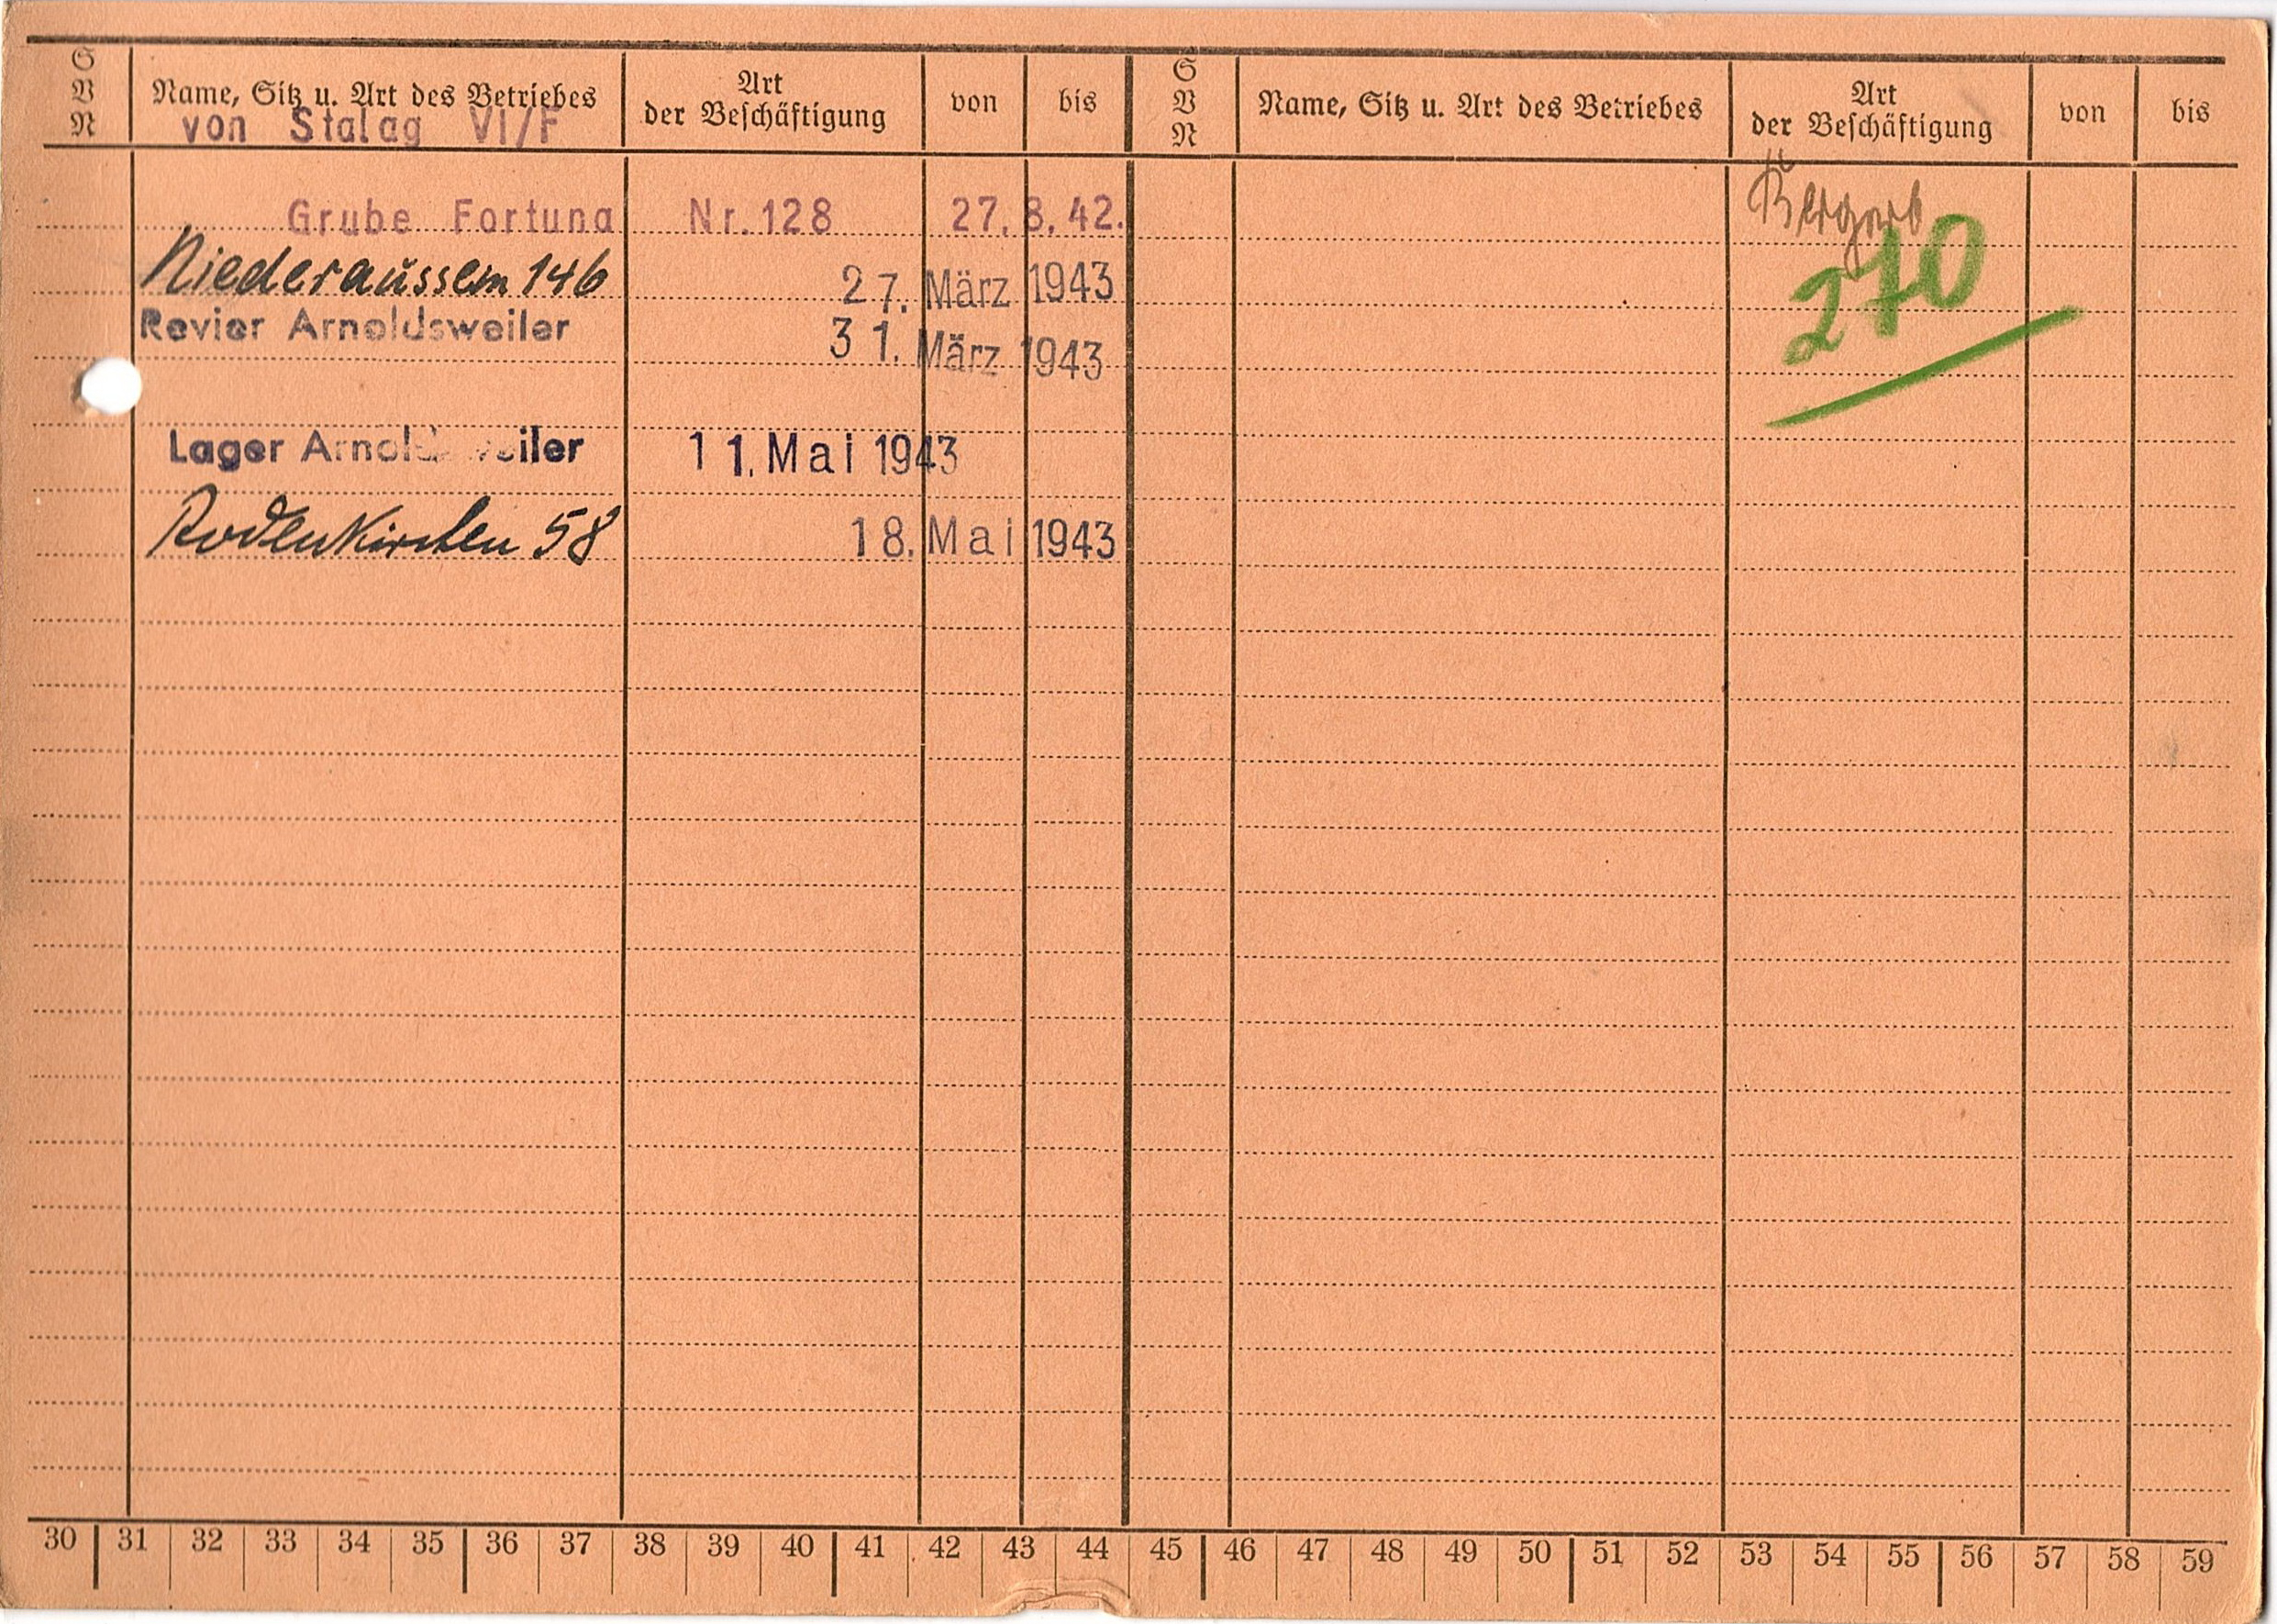 S V N Name, Sitz u. Art des Betriebes Art der Beschäftigung von bis S V N Name, Sitz u. Art des Betriebes Art der Beschäftigung von bis
von Stalag VI/F
Grube Fortuna Nr. 128 27. 8. 42.
Niederaussem 146 27. März 1943
Revier Arnoldsweiler 31. März 1943
Lager Arnoldsweiler 11. Mai 1943
Rodenkirchen 58 18. Mai 1943
270
30 31 32 33 34 35 36 37 38 39 40 41 42 43 44 45 46 47 48 49 50 51 52 53 54 55 56 57 58 59